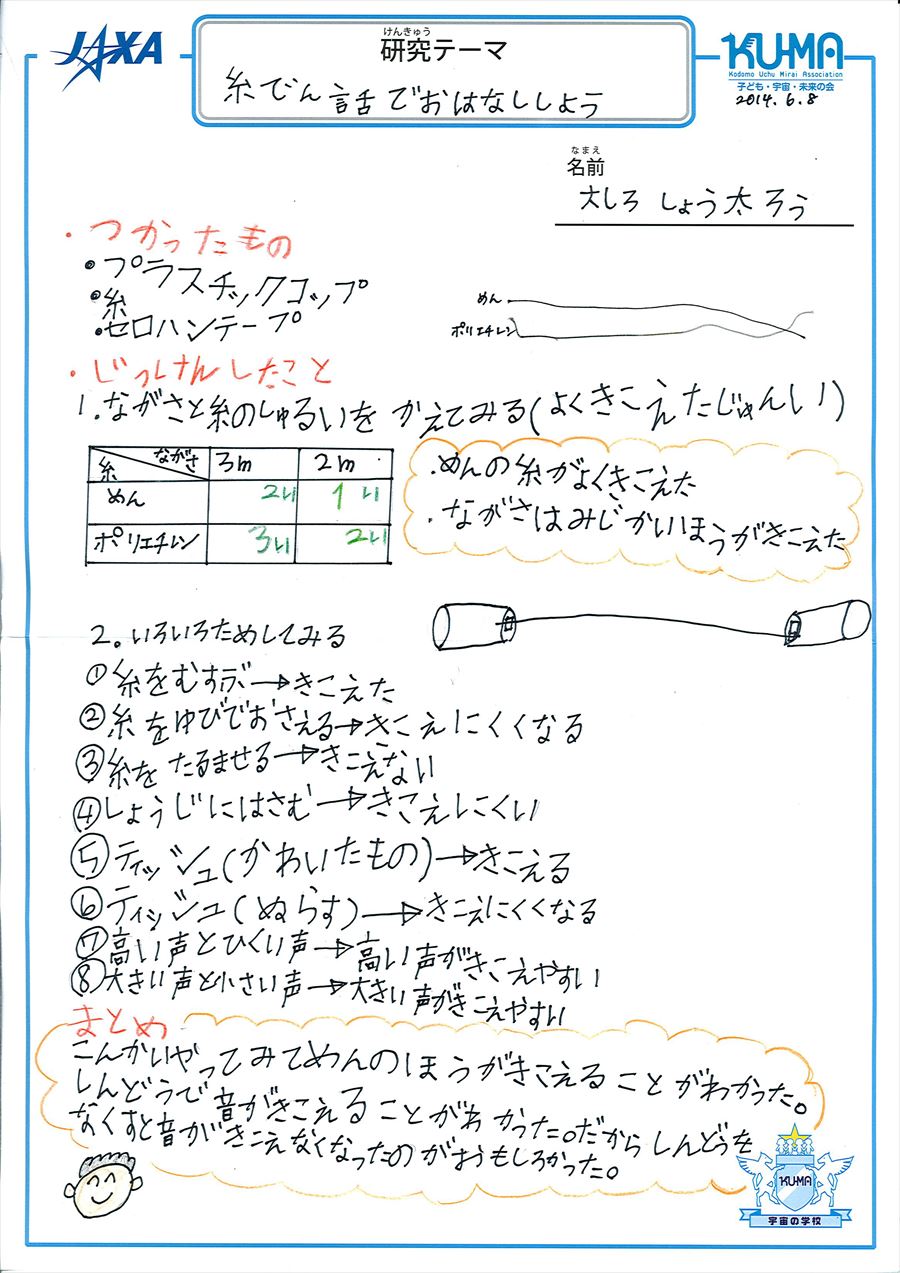 JAXA
けんきゅう
研究テーマ
糸でん話でおはなししよう
KU-MA
Kodomo Uchu Mirai Association
子ども・宇宙・未来の会
2014.6.8
なまえ
名前
大しろ しょう太ろう
・つかったもの
・プラスチックコップ
・糸
・セロハンテープ
めん
ポリエチレン
・じっけんしたこと
1.ながさと糸のしゅるいを かえてみる(よくきこえたじゅんい)
糸 ながさ 3m 2m
めん 2い 1い
ポリエチレン 3い 2い
・めんの糸がよくきこえた
・ながさはみじかいほうがきこえた
2.いろいろためしてみる
①糸をむすぶ→きこえた
②糸をゆびでおさえる→きこえにくくなる
③糸を たるませる→きこえない
④しょうじにはさむ→きこえにくい
⑤ティッシュ(かわいたもの)→きこえる
⑥ティッシュ(ぬらす)→きこえにくくなる
⑦高い声とひくい声→高い声がきこえやすい
⑧大きい声と小さい声→大きい声がきこえやすい
まとめ
こんかいやってみてめんのほうがきこえることがわかった。
しんどうで音がきこえることがわかった。だからしんどうを
なくすと音がきこえなくなったのがおもしろかった。
KU-MA
宇宙の学校